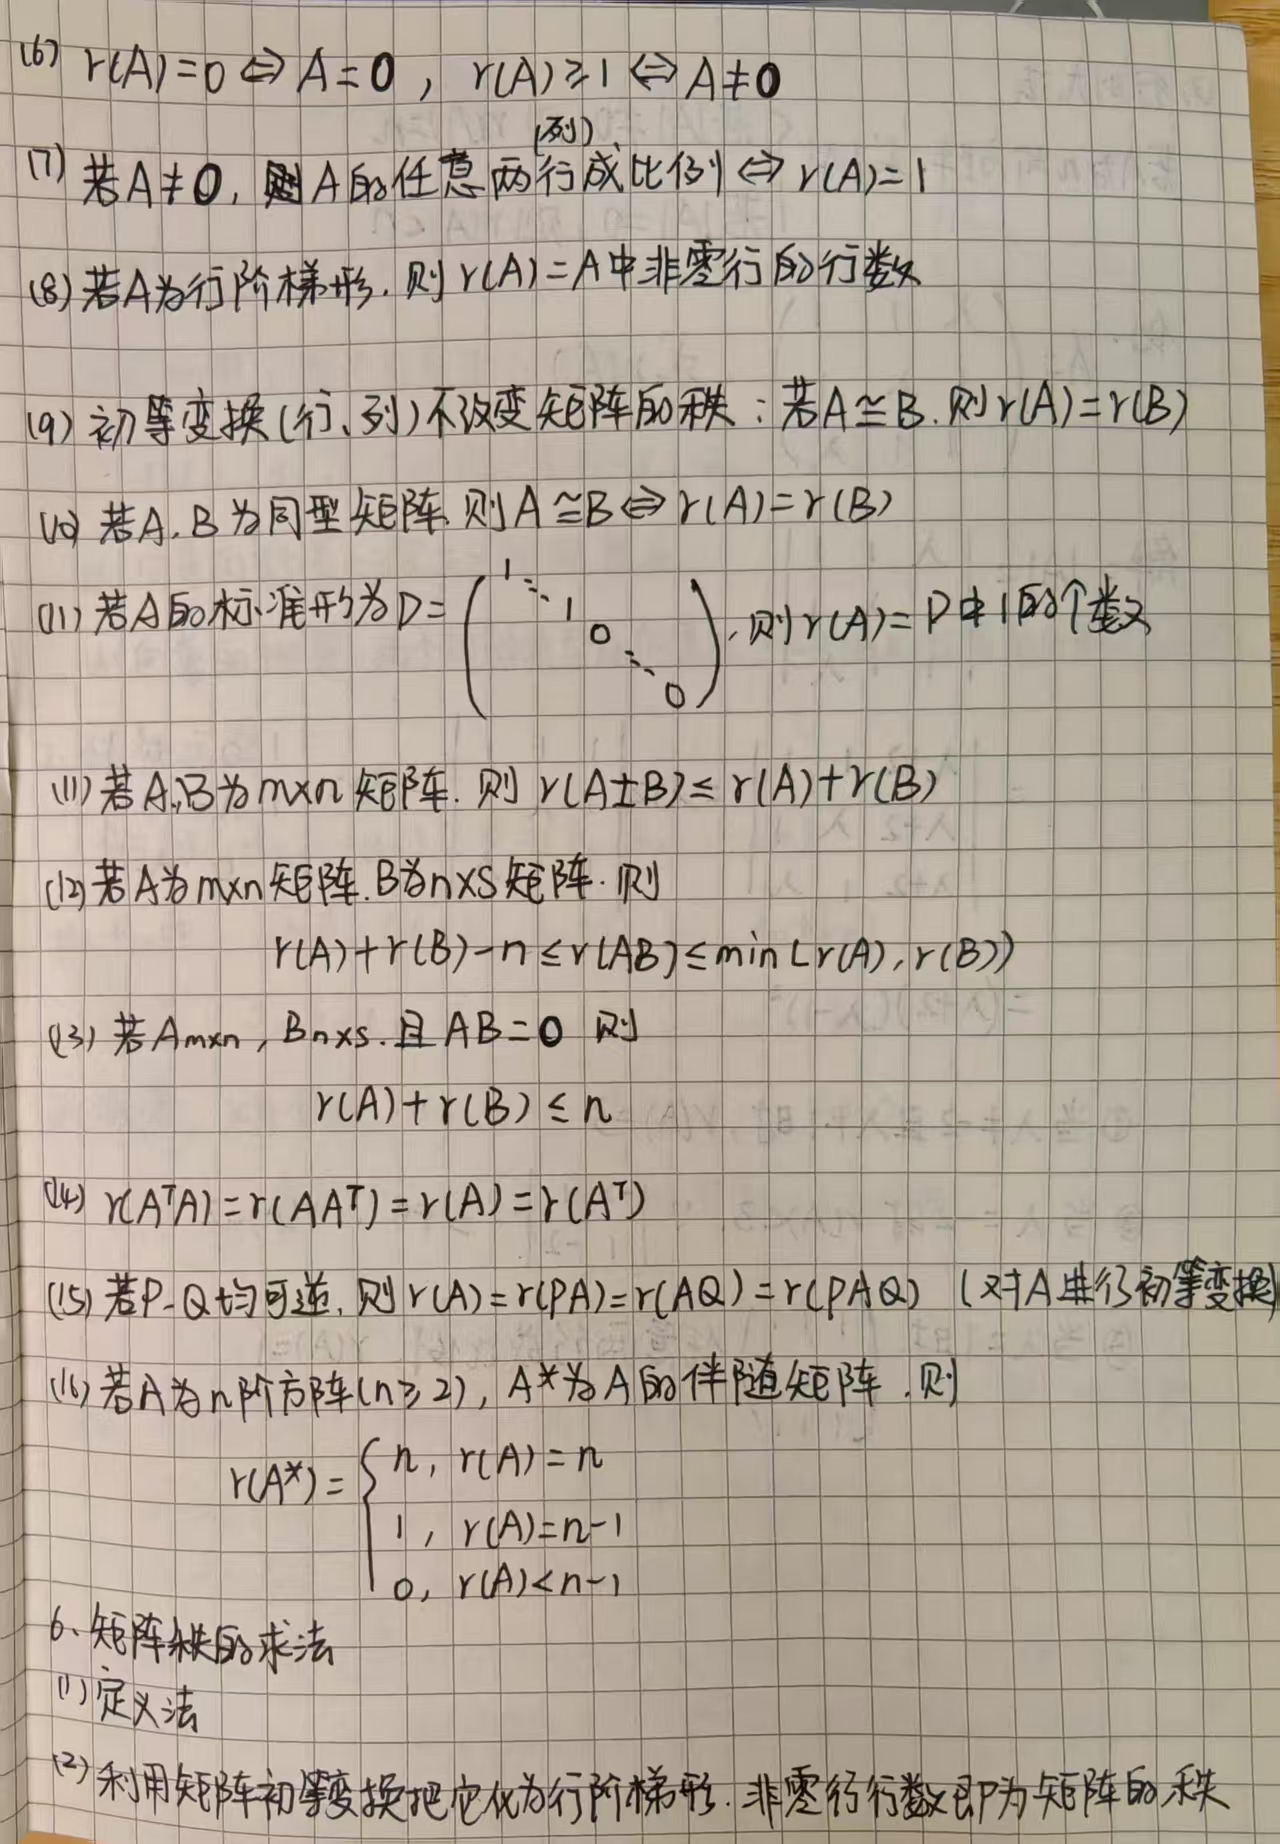 (6) r(A)=0⇔A=0, r(A)≥1⇔A≠0
(列)
(7) 若A≠0, 则A的任意两行成比例⇔r(A)=1
(8) 若A为行阶梯形.则r(A)=A中非零行的行数
(9) 初等变换(行、列)不改变矩阵的秩:若A≅B.则r(A)=r(B)
(10) 若A.B为同型矩阵.则A≅B⇔r(A)=r(B)
(11) 若A的标准形为D=(1 ⋱ 1 0 ⋱ 0),则r(A)=D中1的个数
(11) 若A,B为m×n矩阵.则r(A±B)≤r(A)+r(B)
(12) 若A为m×n矩阵.B为n×s矩阵.则
r(A)+r(B)-n≤r(AB)≤min(r(A),r(B))
(13) 若Am×n, Bn×s.且AB=0 则
r(A)+r(B)≤n
(14) r(AᵀA)=r(AAᵀ)=r(A)=r(Aᵀ)
(15) 若P-Q均可逆.则r(A)=r(PA)=r(AQ)=r(PAQ) (对A进行初等变换)
(16) 若A为n阶方阵(n≥2), A*为A的伴随矩阵.则
r(A*)={n, r(A)=n
1, r(A)=n-1
0, r(A)<n-1
6、矩阵秩的求法
(1) 定义法
(2) 利用矩阵初等变换把它化为行阶梯形.非零行行数即为矩阵的秩